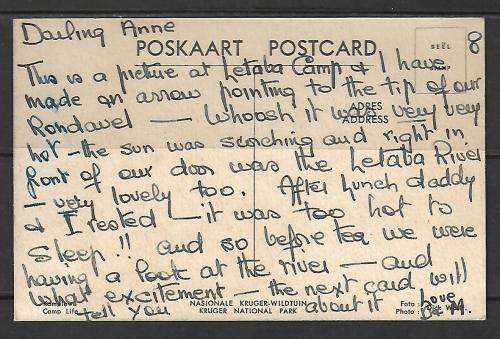 Darling Anne
8
POSKAART POSTCARD
SEËL
STAMP
This is a picture at Letaba Camp & I have
made an arrow pointing to the tip of our
ADRES
ADDRESS
Rondavel — Whoosh it was very very
hot — the sun was scorching and right in
front of our door was the Letaba River
— very lovely too. After lunch daddy
& I rested — it was too hot to
sleep!! and so before tea we were
having a look at the river — and
what excitement — the next card will
tell you about it
Love
Camp Life
NASIONALE KRUGER-WILDTUIN
KRUGER NATIONAL PARK
Foto
Photo: